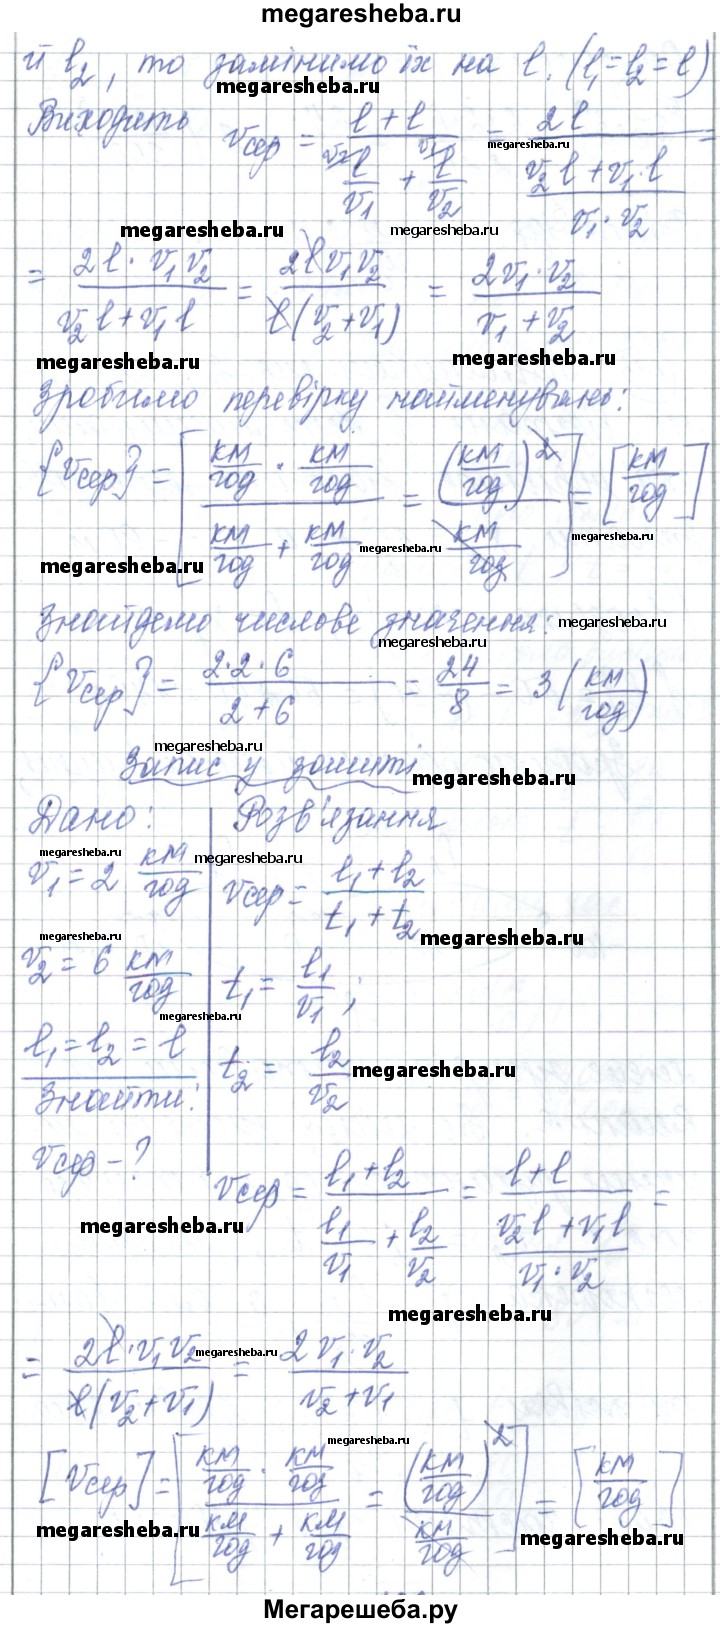 megaresheba.ru
й l₂, то замінимо їх на l. (l₁=l₂=l)
megaresheba.ru
Виходить vсер = (l+l)/(l/v₁ + l/v₂) = 2l/((v₂l+v₁·l)/(v₁·v₂)) =
megaresheba.ru
megaresheba.ru megaresheba.ru
= (2l·v₁v₂)/(v₂l+v₁l) = (2lv₁v₂)/(l(v₂+v₁)) = (2v₁·v₂)/(v₁+v₂)
megaresheba.ru megaresheba.ru
Зробимо перевірку найменувань:
{vсер} = [(км/год · км/год)/(км/год + км/год) = (км/год)²/(км/год)] = [км/год]
megaresheba.ru megaresheba.ru megaresheba.ru
Знайдемо числове значення: megaresheba.ru
megaresheba.ru
{vсер} = (2·2·6)/(2+6) = 24/8 = 3 (км/год)
megaresheba.ru
Запис у зошиті megaresheba.ru
Дано: Розв'язання
megaresheba.ru megaresheba.ru
v₁ = 2 км/год vсер = (l₁+l₂)/(t₁+t₂)
megaresheba.ru megaresheba.ru
v₂ = 6 км/год t₁ = l₁/v₁;
megaresheba.ru
l₁=l₂=l t₂ = l₂/v₂
megaresheba.ru
Знайти:
vсер - ? vсер = (l₁+l₂)/(l₁/v₁ + l₂/v₂) = (l+l)/((v₂l+v₁l)/(v₁·v₂)) =
megaresheba.ru
megaresheba.ru
= (2l·v₁v₂)/(l(v₂+v₁)) = (2v₁·v₂)/(v₂+v₁)
megaresheba.ru
megaresheba.ru
[vсер] = [(км/год · км/год)/(км/год + км/год) = (км/год)²/(км/год)] = [км/год]
megaresheba.ru megaresheba.ru
Мегарешеба.ру